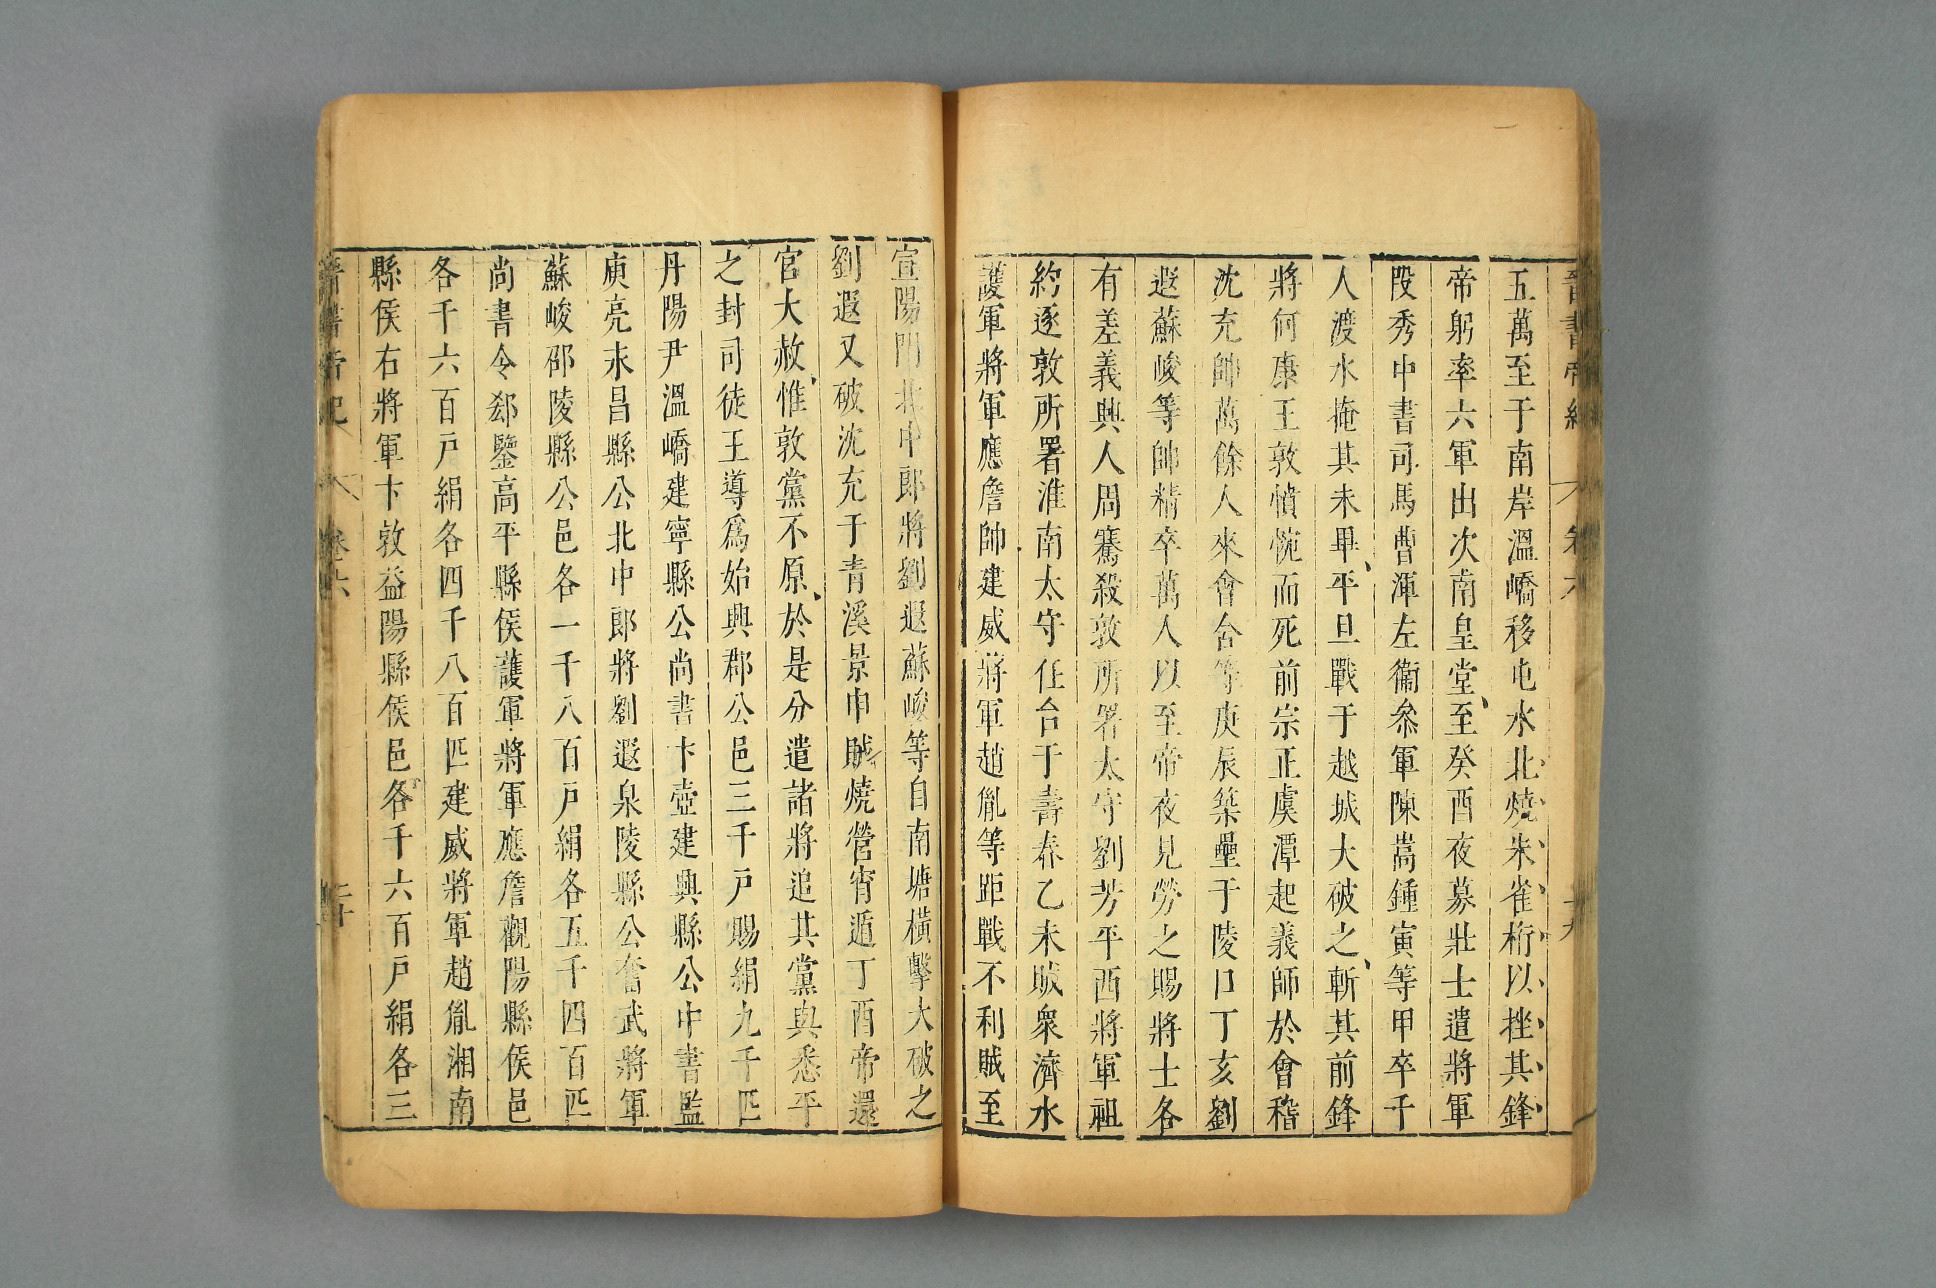 晉書帝紀 卷六 十九
五萬至于南岸溫嶠移屯水北燒朱雀桁以挫其鋒
帝躬率六軍出次南皇堂至癸酉夜募壯士遣將軍
段秀中書司馬曹渾左衞叅軍陳嵩鍾寅等甲卒千
人渡水掩其未畢平旦戰于越城大破之斬其前鋒
將何康王敦憤惋而死前宗正虞潭起義師於會稽
沈充帥萬餘人來會含等庚辰築壘于陵口丁亥劉
遐蘇峻等帥精卒萬人以至帝夜見勞之賜將士各
有差義興人周蹇殺敦所署太守劉芳平西將軍祖
約逐敦所署淮南太守任台于壽春乙未賊衆濟水
護軍將軍應詹帥建威將軍趙胤等距戰不利賊至
宣陽門北中郎將劉遐蘇峻等自南塘橫擊大破之
劉遐又破沈充于青溪景申賊燒營宵遁丁酉帝還
官大赦惟敦黨不原於是分遣諸將追其黨與悉平
之封司徒王導爲始興郡公邑三千戶賜絹九千匹
丹陽尹溫嶠建寧縣公尚書卞壺建興縣公中書監
庾亮永昌縣公北中郎將劉遐泉陵縣公奮武將軍
蘇峻邵陵縣公邑各一千八百戶絹各五千四百匹
尚書令郄鑒高平縣侯護軍將軍應詹觀陽縣侯邑
各千六百戶絹各四千八百匹建威將軍趙胤湘南
縣侯右將軍卞敦益陽縣侯邑各千六百戶絹各三
晉書帝紀 卷六 二十